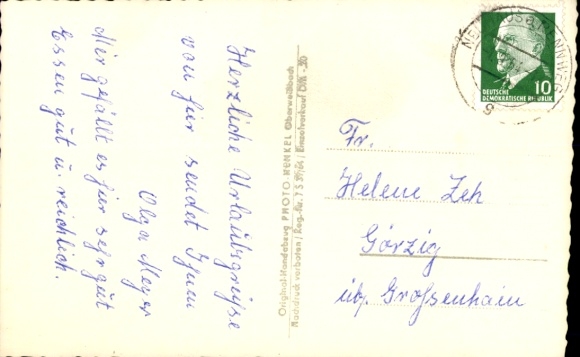 Herzliche Urlaubsgrüße
von hier sendet Ihnen
Olga Meyer
Mir gefällt es hier sehr gut
Essen gut u. reichlich.
Original-Handabzug PHOTO-HENKEL Oberweißbach
Nachdruck verboten / Reg.-Nr. / Einzelverkauf DM -.20
NEUHAUS a RENNWEG
10
DEUTSCHE
DEMOKRATISCHE REPUBLIK
Fr.
Helene Zeh
Görzig
üb. Großenhain